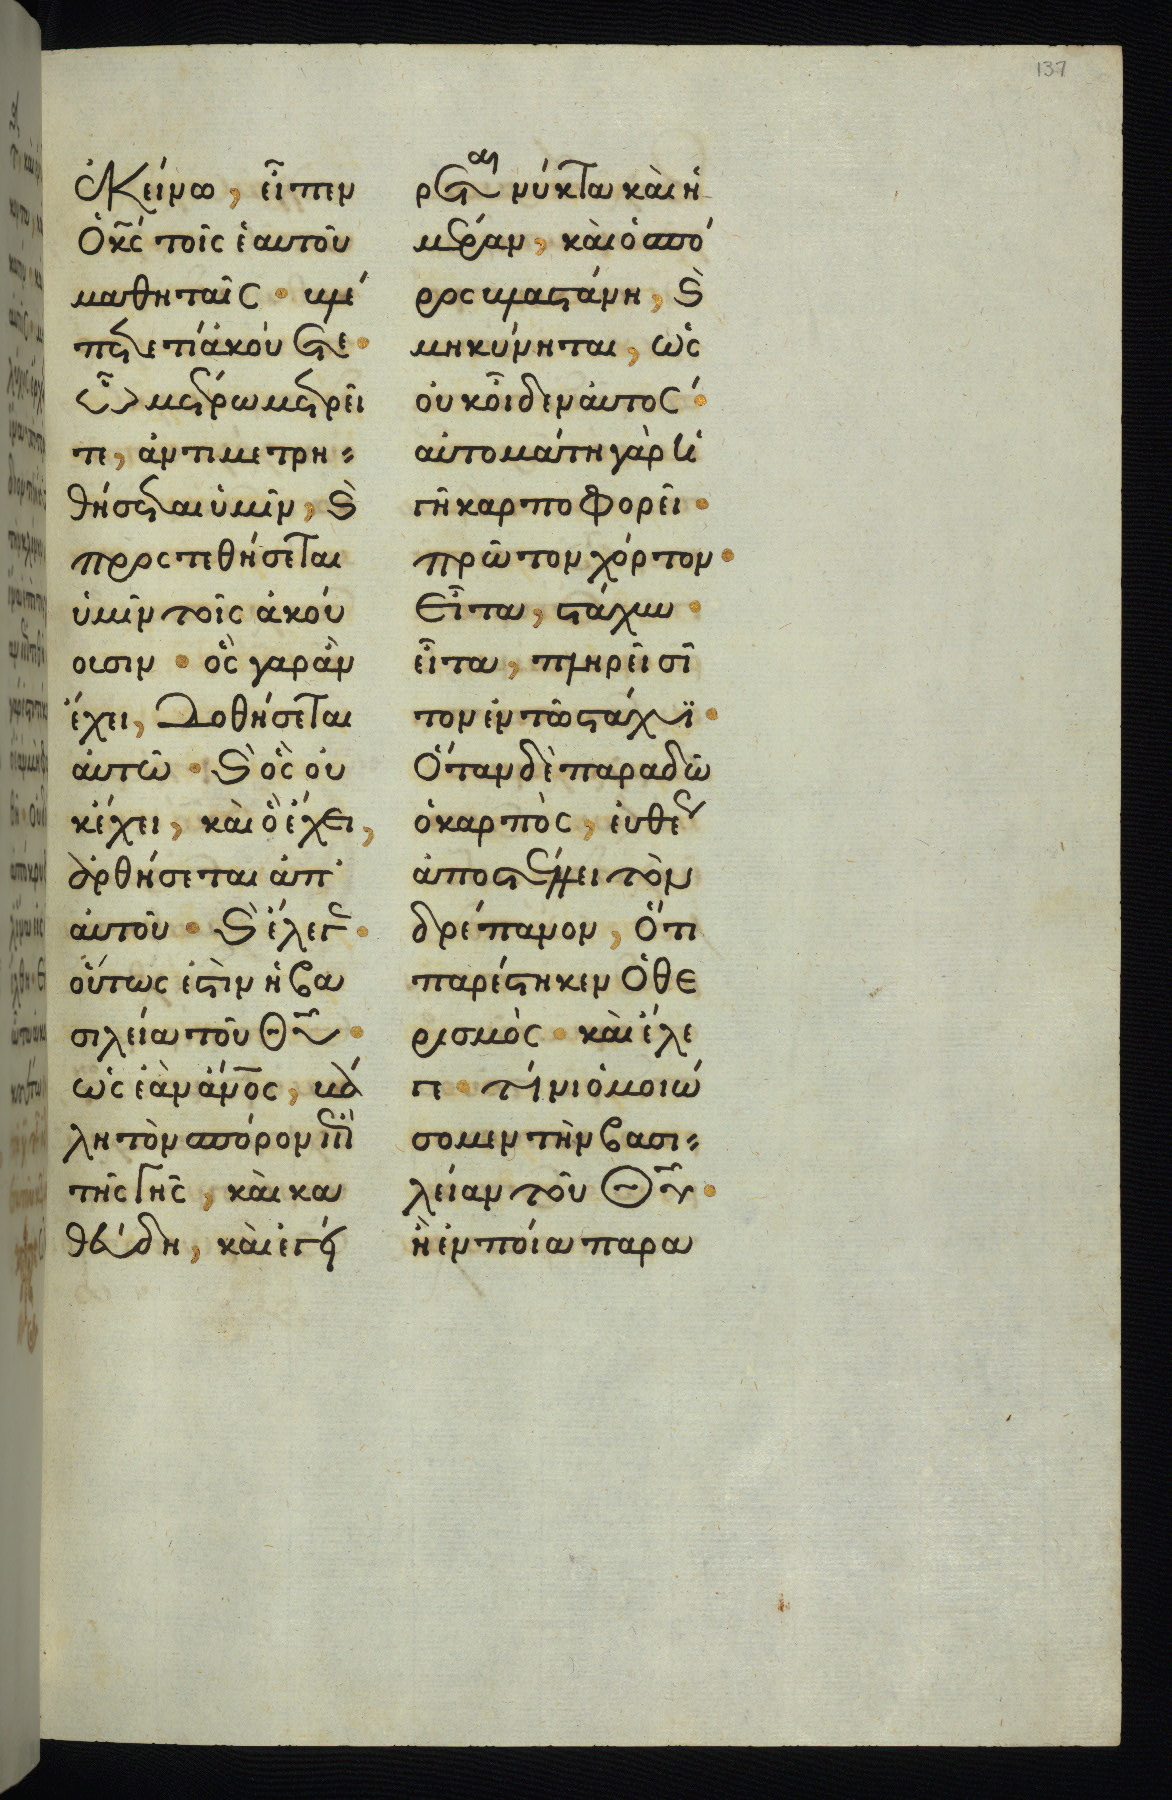 137
ἐκείνω, εἶπεν
ὁ κ̅ς τοῖς ἑαυτοῦ
μαθηταῖς · βλέ
πετε τί ἀκούετε ·
ἐν ὧ μέτρω μετρεῖ
τε, ἀντιμετρη-
θήσεται ὑμῖν, καὶ
προστεθήσεται
ὑμῖν τοῖς ἀκού
ουσιν · ὃς γαρ ἂν
ἔχει, δοθήσεται
αὐτῶ · καὶ ὃς οὐ
κ ἔχει, καὶ ὃ ἔχει,
ἀρθήσεται ἀπ'
αὐτοῦ · καὶ ἔλεγεν ·
οὕτως ἐστὶν ἡ βα
σιλεία τοῦ θ̅υ ·
ὡς ἐὰν ἄν̅ος, βά
λη τὸν σπόρον ἐπὶ
τῆς γῆς, καὶ κα
θεύδη, καὶ ἐγεί
ρεται νύκτα καὶ ἡ
μέραν, καὶ ὁ σπό
ρος βλαστάνη, καὶ
μηκύνηται, ὡς
οὐκ οἶδεν αὐτός ·
αὐτομάτη γὰρ ἡ
γῆ καρποφορεῖ ·
πρῶτον χόρτον ·
εἶτα, στάχυν ·
εἶτα, πλήρει σῖ
τον ἐν τῶ στάχυϊ ·
Ὅταν δὲ παραδῶ
ὁ καρπὸς, ἐυθεὺς
ἀποστέλλει τὸ
δρέπανον, Ὅτι
παρέστηκεν ὁ θε
ρισμός · καὶ ἔλε
γε · τίνι ὁμοιώ
σομεν τὴν βασι-
λείαν τοῦ θ̅υ ·
ἢ ἐν ποία παρα